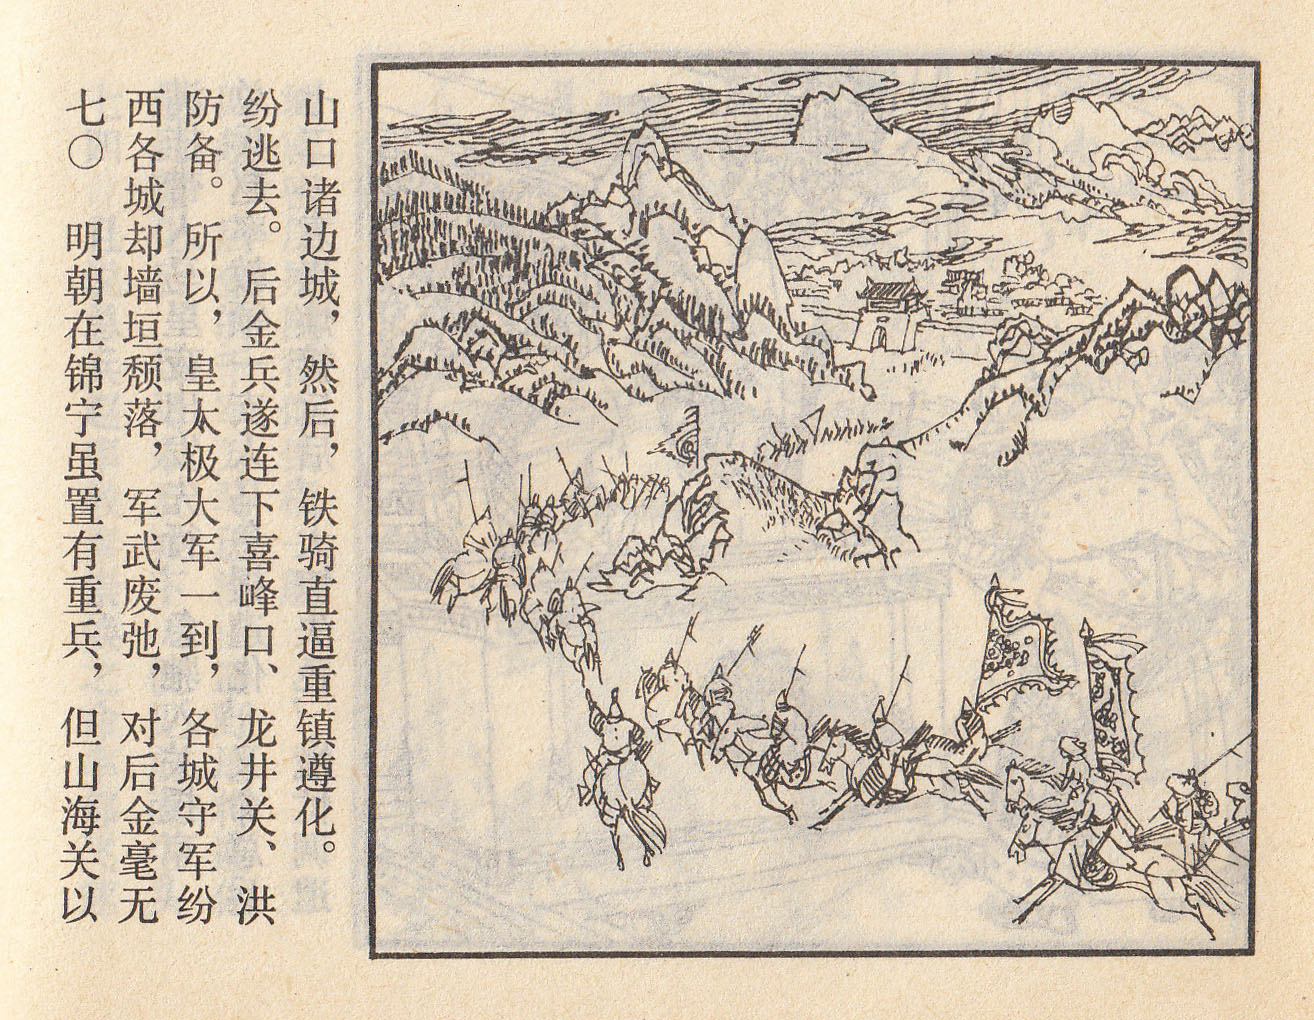 七〇 明朝在锦宁虽置有重兵，但山海关以
西各城却墙垣颓落，军武废弛，对后金毫无
防备。所以，皇太极大军一到，各城守军纷
纷逃去。后金兵遂连下喜峰口、龙井关、洪
山口诸边城，然后，铁骑直逼重镇遵化。